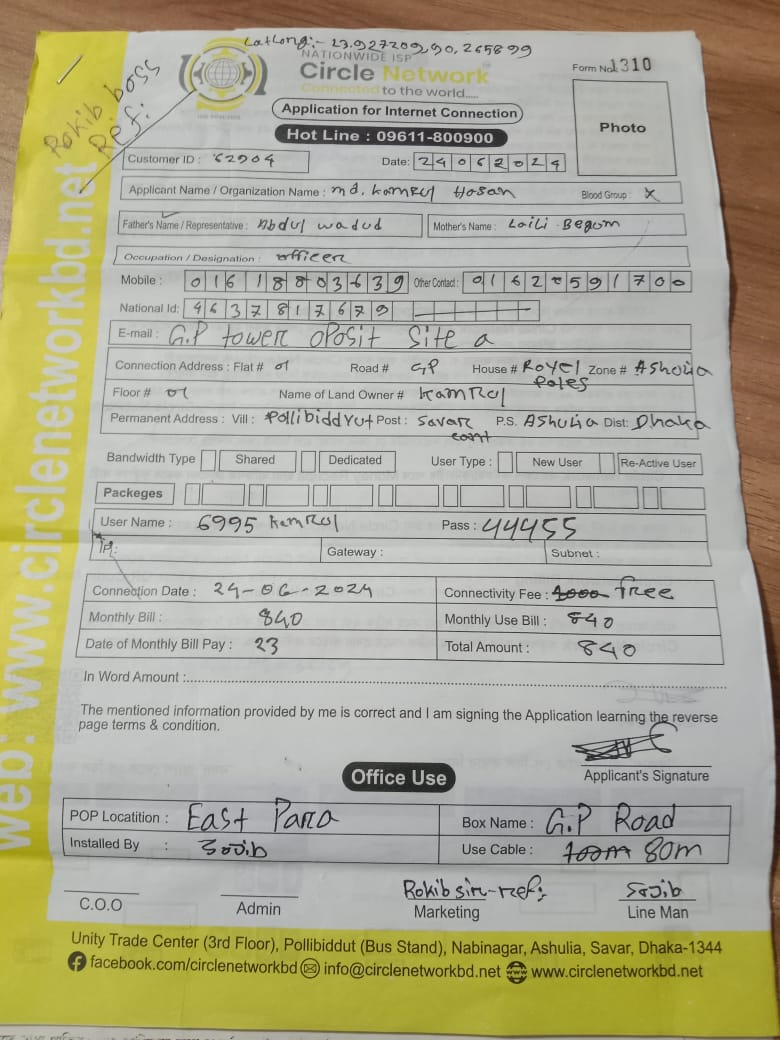 LatLong:- 23.927209,90,265899
NATIONWIDE ISP
Circle Network
Connected to the world.....
Form No. 1310
Rokib boss
Ref:
Application for Internet Connection
Hot Line : 09611-800900
Photo
Customer ID : 62904 Date: 24062024
Applicant Name / Organization Name : md. Kamrul Hosan Blood Group : X
Father's Name / Representative : Abdul wadud Mother's Name : Laili Begum
Occupation / Designation : officer
Mobile : 01618803639 Other Contact : 01620591700
National Id: 4637817679
E-mail : G.P tower oposit Site a
Connection Address : Flat # 01 Road # GP House # Royel Pales Zone # Ashulia
Floor # 01 Name of Land Owner # Kamrul
Permanent Address : Vill : Pollibiddyut Post : Savar cant P.S. Ashulia Dist: Dhaka
Bandwidth Type Shared Dedicated User Type : New User Re-Active User
Packeges
User Name : 6995 Kamrul Pass : 44455
IP: Gateway : Subnet :
Connection Date : 24-06-2024 Connectivity Fee : 1000 free
Monthly Bill : 840 Monthly Use Bill : 840
Date of Monthly Bill Pay : 23 Total Amount : 840
In Word Amount :
The mentioned information provided by me is correct and I am signing the Application learning the reverse
page terms & condition.
Applicant's Signature
Office Use
POP Locatition : East Para Box Name : G.P Road
Installed By : Sojib Use Cable : 100m 80m
Rokib sir-ref: Sojib
C.O.O Admin Marketing Line Man
Unity Trade Center (3rd Floor), Pollibiddut (Bus Stand), Nabinagar, Ashulia, Savar, Dhaka-1344
facebook.com/circlenetworkbd info@circlenetworkbd.net www.circlenetworkbd.net
web: www.circlenetworkbd.net